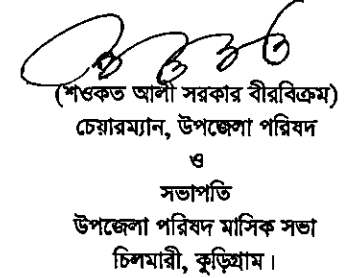 (শওকত আলী সরকার বীরবিক্রম)
চেয়ারম্যান, উপজেলা পরিষদ
ও
সভাপতি
উপজেলা পরিষদ মাসিক সভা
চিলমারী, কুড়িগ্রাম।